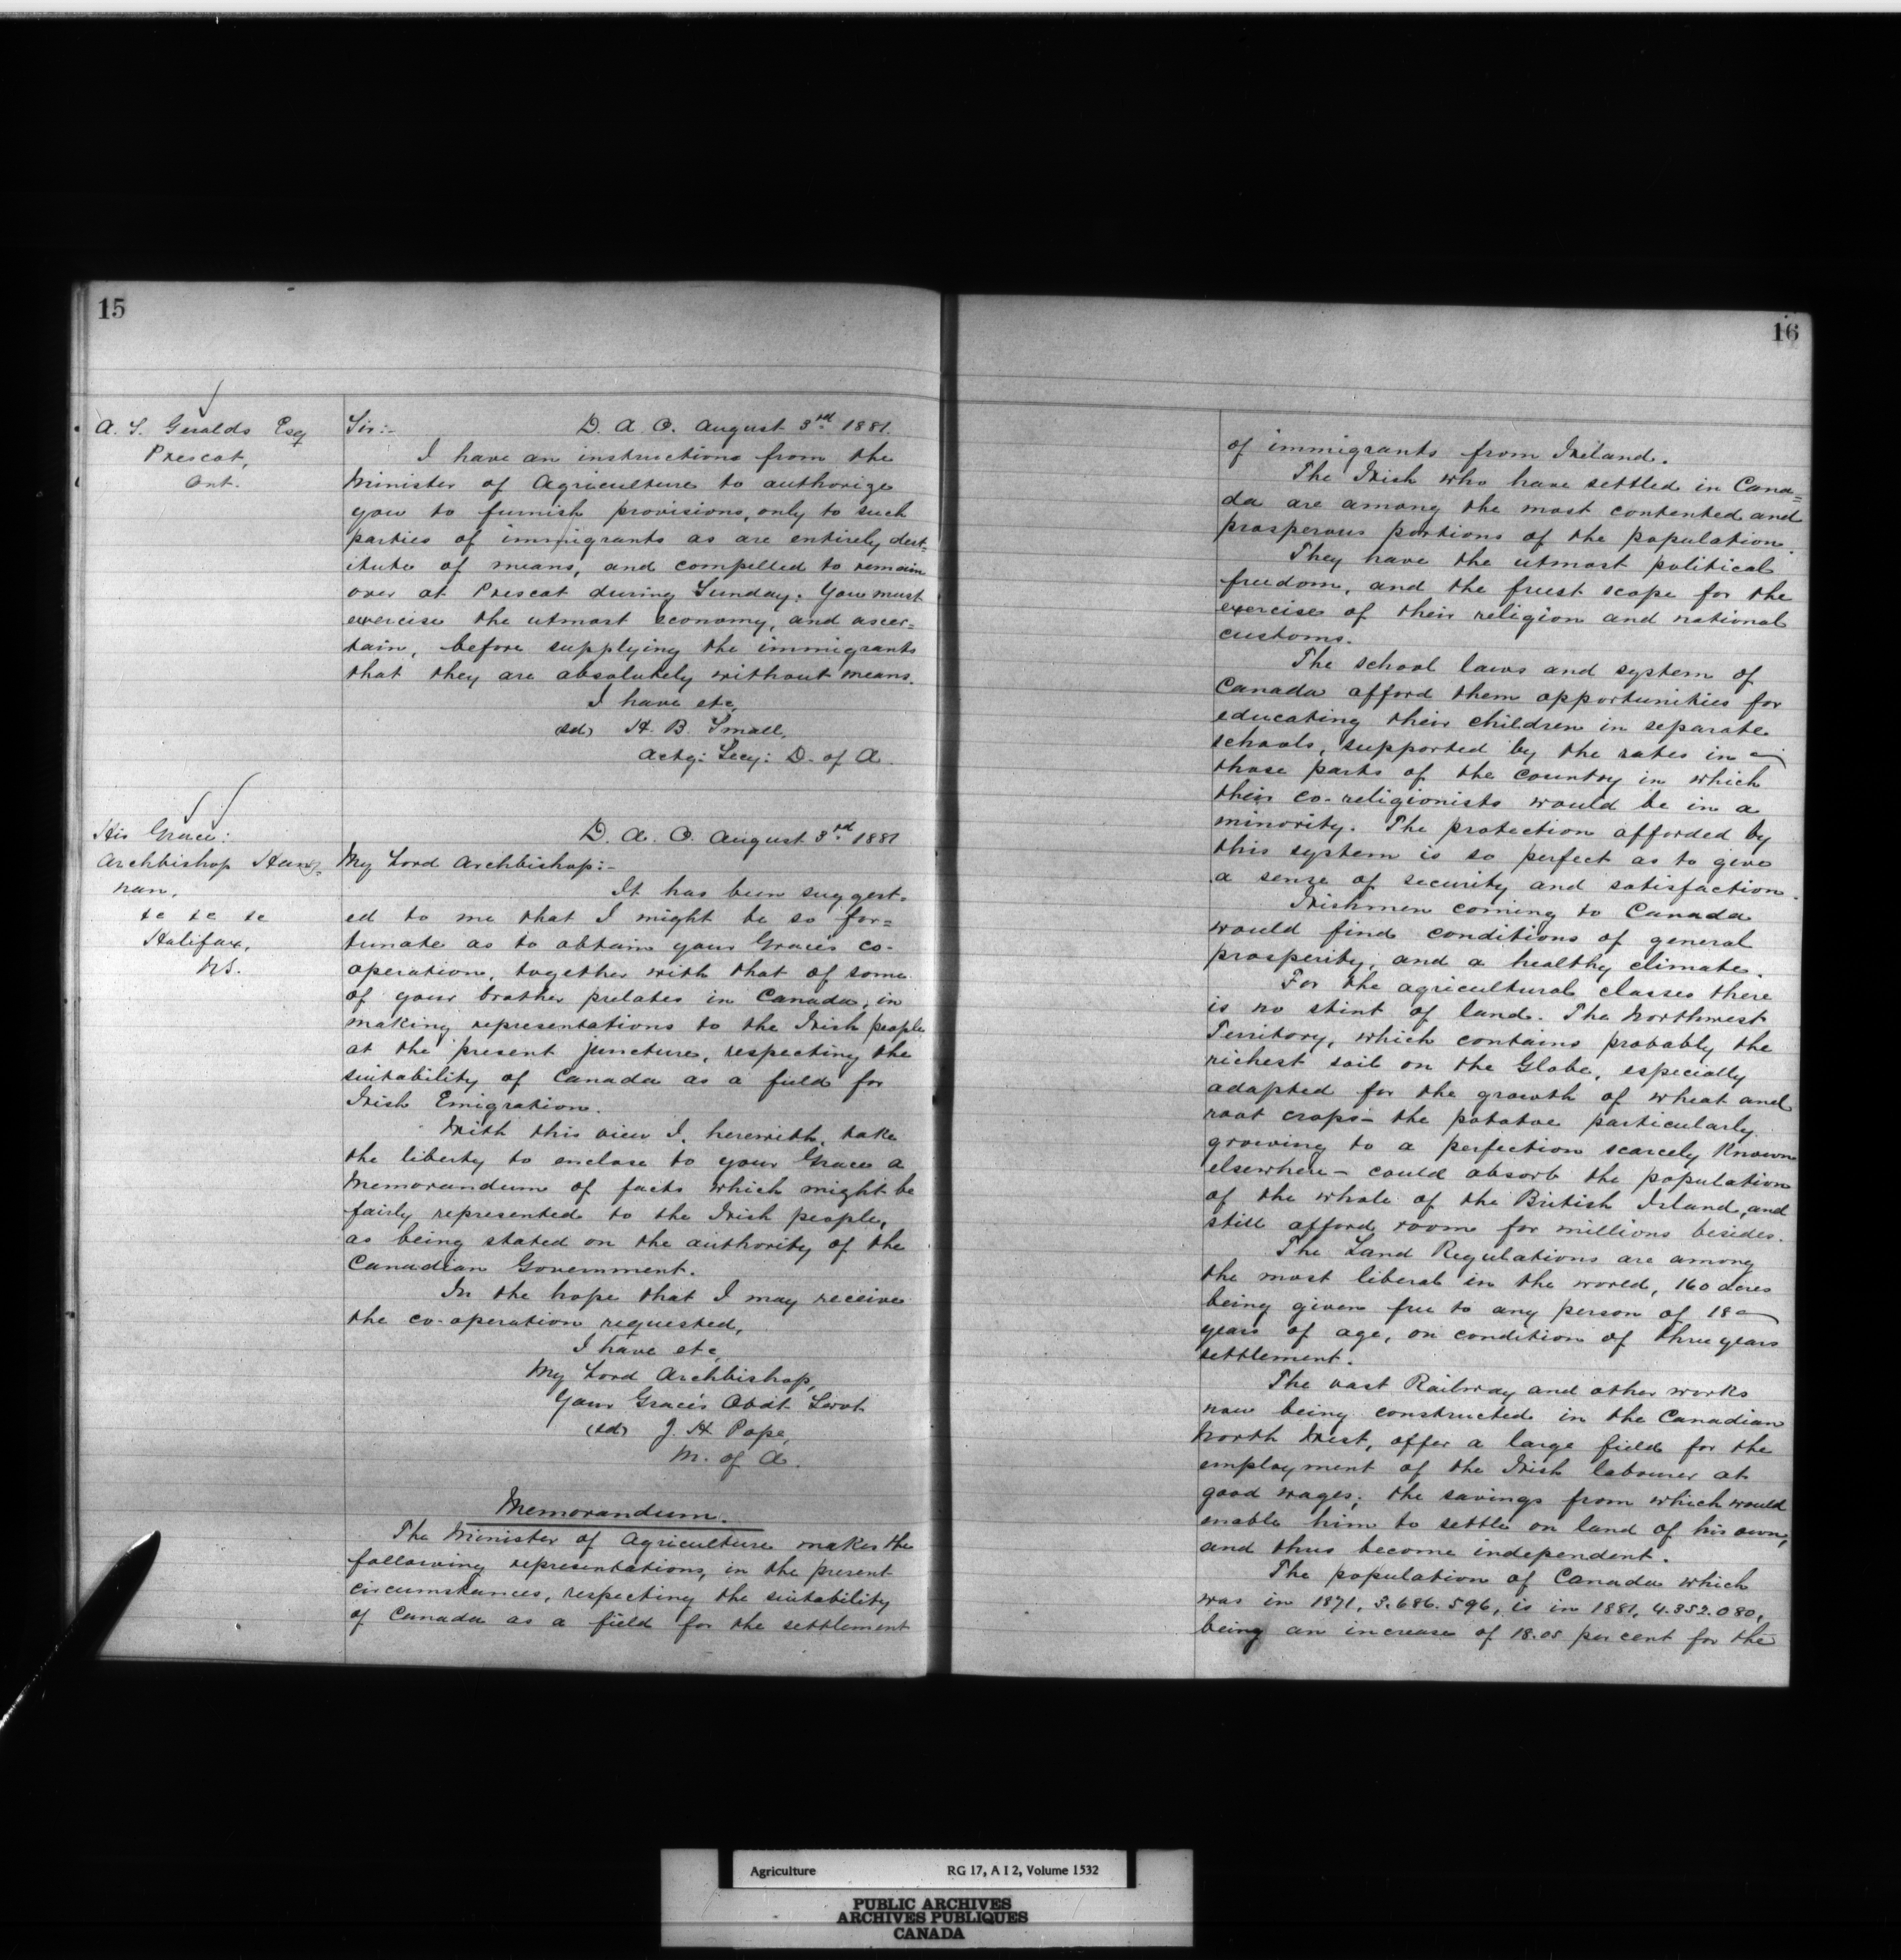 15
A. S. Geralds Esq
Prescot,
Ont.
Sir:- D. A. O. August 3rd 1881.
I have an instructions from the
Minister of Agriculture to authorize
you to furnish provisions, only to such
parties of immigrants as are entirely dest-
itute of means, and compelled to remain
over at Prescot during Sunday. You must
exercise the utmost economy, and ascer=
tain, before supplying the immigrants
that they are absolutely without means.
I have etc,
(sd) H. B. Small,
Actg: Secy: D. of A.
His Grace:
Archbishop Han=
nan.
&c &c &c
Halifax,
N.S.
D. A. O. August 3rd 1881
My Lord Archbishop:-
It has been suggest-
ed to me that I might be so for=
tunate as to obtain your Grace's co-
operation, together with that of some
of your brother prelates in Canada, in
making representations to the Irish people
at the present juncture, respecting the
suitability of Canada as a field for
Irish Emigration.
With this view I, herewith, take
the liberty to enclose to your Grace a
Memorandum of facts which might be
fairly represented to the Irish people,
as being stated on the authority of the
Canadian Government.
In the hope that I may receive
the co-operation requested,
I have etc,
My Lord Archbishop,
Your Grace's Obdt Servt
(sd) J. H. Pope,
M. of A.
Memorandum.
The Minister of Agriculture makes the
following representations, in the present
circumstances, respecting the suitability
of Canada as a field for the settlement
16
of immigrants from Ireland.
The Irish who have settled in Cana=
da are among the most contented and
prosperous portions of the population.
They have the utmost political
freedom, and the freest scope for the
exercise of their religion and national
customs.
The school laws and system of
Canada afford them opportunities for
educating their children in separate
schools, supported by the rates in
those parts of the country in which
their co-religionists would be in a
minority. The protection afforded by
this system is so perfect as to give
a sense of security and satisfaction.
Irishmen coming to Canada
would find conditions of general
prosperity, and a healthy climate.
For the agricultural classes there
is no stint of land. The Northwest
Territory, which contains probably the
richest soil on the Globe, especially
adapted for the growth of wheat and
root crops - the potatoe particularly
growing to a perfection scarcely known
elsewhere - could absorb the population
of the whole of the British Island, and
still afford room for millions besides.
The Land Regulations are among
the most liberal in the world, 160 acres
being given free to any person of 18
years of age, on condition of three years
settlement.
The vast Railway and other works
now being constructed in the Canadian
North West, offer a large field for the
employment of the Irish labourer at
good wages; the savings from which would
enable him to settle on land of his own,
and thus become independent.
The population of Canada which
was in 1871, 3.686.596, is in 1881, 4.352.080,
being an increase of 18.05 per cent for the
Agriculture RG 17, A I 2, Volume 1532
PUBLIC ARCHIVES
ARCHIVES PUBLIQUES
CANADA